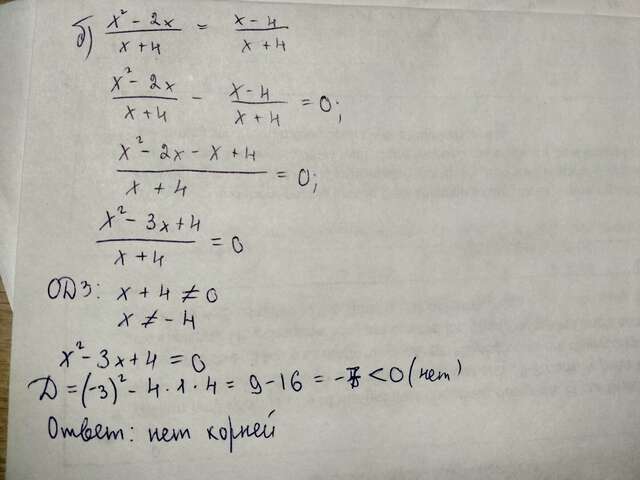 б) (x² - 2x)/(x + 4) = (x - 4)/(x + 4)
(x² - 2x)/(x + 4) - (x - 4)/(x + 4) = 0;
(x² - 2x - x + 4)/(x + 4) = 0;
(x² - 3x + 4)/(x + 4) = 0
ОДЗ: x + 4 ≠ 0
x ≠ - 4
x² - 3x + 4 = 0
Д = (-3)² - 4 · 1 · 4 = 9 - 16 = -7 < 0 (нет)
Ответ: нет корней